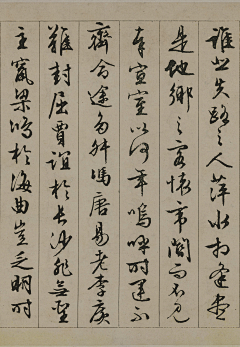 誰悲失路之人萍水相逢盡
是他鄉之客懷帝閽而不見
奉宣室以何年嗚呼時運不
齊命途多舛馮唐易老李廣
難封屈賈誼於長沙非無聖
主竄梁鴻於海曲豈乏明時